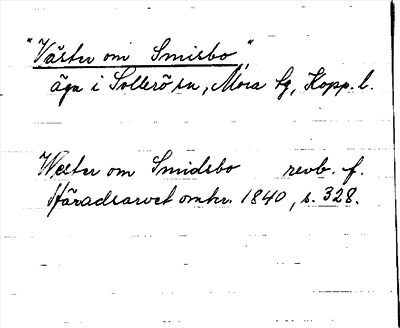 "Väster om Smisbo,"
äga i Sollerö sn, Mora tg, Kopp. l.
Wester om Smidsbo revb. f.
Häradsarvet omkr. 1840, s. 328.